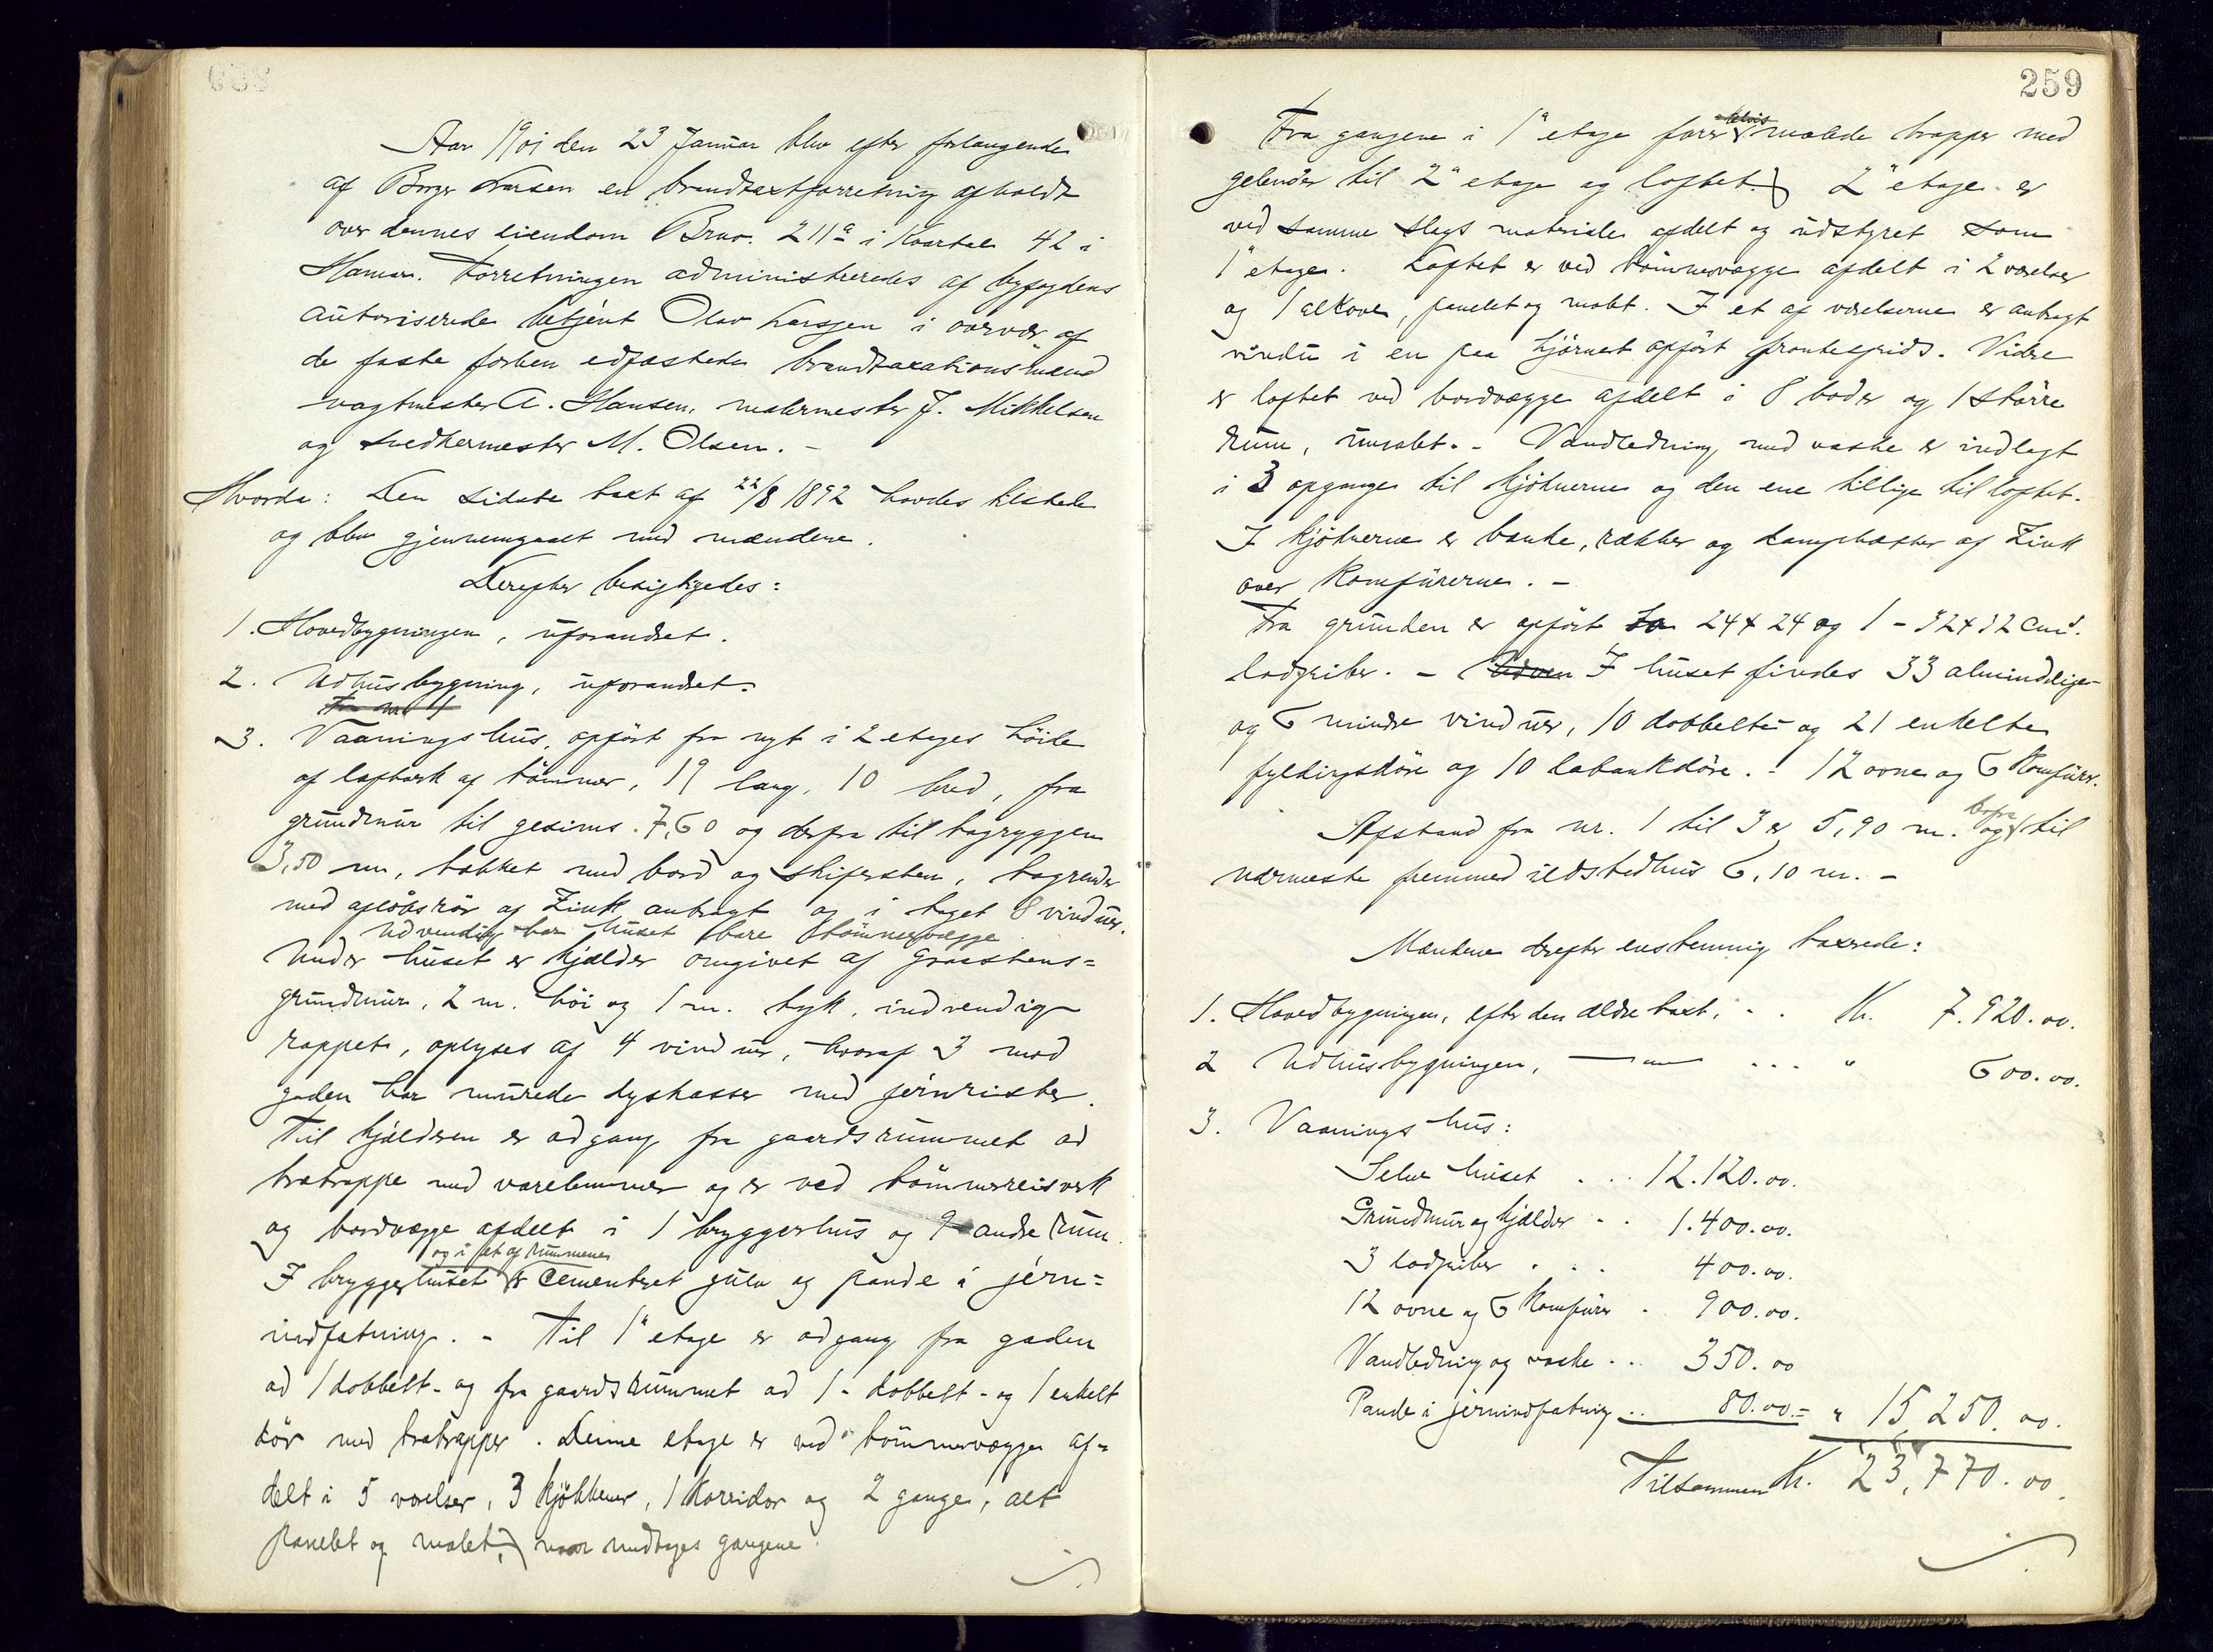 Aar 1901 den 23 Januar blev efter forlangende
af Borger Larsen en brandtaxtforretning afholdt
over dennes eiendom Brno. 211a i Kvartal 42 i
Hamar. Forretningen administreredes af byfogdens
autoriserede betjent Olav Larssen i overvær af
de faste forhen edfæstede brandtaxationsmænd
vagtmester A. Hansen, malermester J. Mikkelsen
og snedkermester M. Olsen. –
Hvorda: Den sidste taxt af 22/8 1892 havdes tilstede
og blev gjennemgaaet med mændene.
Derefter besigtigedes:
1. Hovedbygningen, uforandret.
2. Udhusbygning, uforandret.
Fra no 1
3. Vaaningshus, opført fra nyt i 2 etages høide
af laftverk af tømmer, 19 lang, 10 bred, fra
grundmur til gesims 7,60 og derfra til tagryggen
3,50 m, tækket med bord og skifersten, tagrender
med afløbsrør af Zink anbragt og i taget 8 vinduer.
Udvendig har huset bare tømmervægge
Under huset er kjælder omgivet af graastens=
grundmur, 2 m. høi og 1 m. tyk, indvendig
rappet, oplyses af 4 vinduer, hvoraf 3 mod
gaden har murede lyskasser med jernrister.
Til kjælderen er adgang fra gaardsrummet ad
trætrappe med værelemmer og er ved tømmerreisverk
og bordvægge afdelt i 1 bryggerhus og 9 andre rum.
og i et af rummene
I bryggerhuset er cementeret gulv og pande i jern=
indfatning. – Til 1ste etage er adgang fra gaden
ad 1 dobbelt- og fra gaardsrummet ad 1 - dobbelt - og 1 enkelt
dør med trætrapper. Denne etage er ved tømmervægge af=
delt i 5 værelser, 3 kjøkkener, 1 Korridor og 2 gange, alt
panelet og malet, naar undtages gangene.
259
delvis
Fra gangene i 1ste etage fører malede trapper med
gelender til 2den etage og loftet. 2den etage er
ved samme slags materiale afdelt og udstyret som
1ste etage. Loftet er ved tømmervægge afdelt i 2 værelser
og 1 alkove, panelet og malt. I et af værelserne er anbragt
vindu i en paa hjørnet opført frontespids. Videre
er loftet ved bordvægge afdelt i 8 boder og 1 større
rum, umalet. - Vandledning med vaske er indlagt
i 3 opgange til kjøknerne og den ene tillige til loftet.
I kjøknerne er bænke, rækker og damphætter af Zink
over Komfurerne. –
Fra grunden er opført to 24 x 24 og 1 - 32 x 32 cm.
lodpiber. – Udven I huset findes 33 almindelige
og 6 mindre vinduer, 10 dobbelte og 21 enkelte
fyldingsdøre og 10 labankdøre. - 12 ovne og 6 Komfurer.
herfra
Afstand fra nr. 1 til 3 er 5,90 m. og til
nærmeste fremmed ildstedhus 6,10 m. –
Mændene derefter enstemmig taxerede:
1. Hovedbygningen, efter den ældre taxt, . . Kr. 7.920.00.
2 Udhusbygningen, — „ — . . . " 600.00.
3. Vaaningshus:
Selve huset . . . 12.120.00.
Grundmur og kjælder . . 1.400.00.
3 lodpiber . . . 400.00.
12 ovne og 6 Komfurer . 900.00.
Vandledning og vaske . . . 350.00
Pande i jernindfatning . . 80.00 = " 15,250.00.
Tilsammen Kr. 23,770.00.